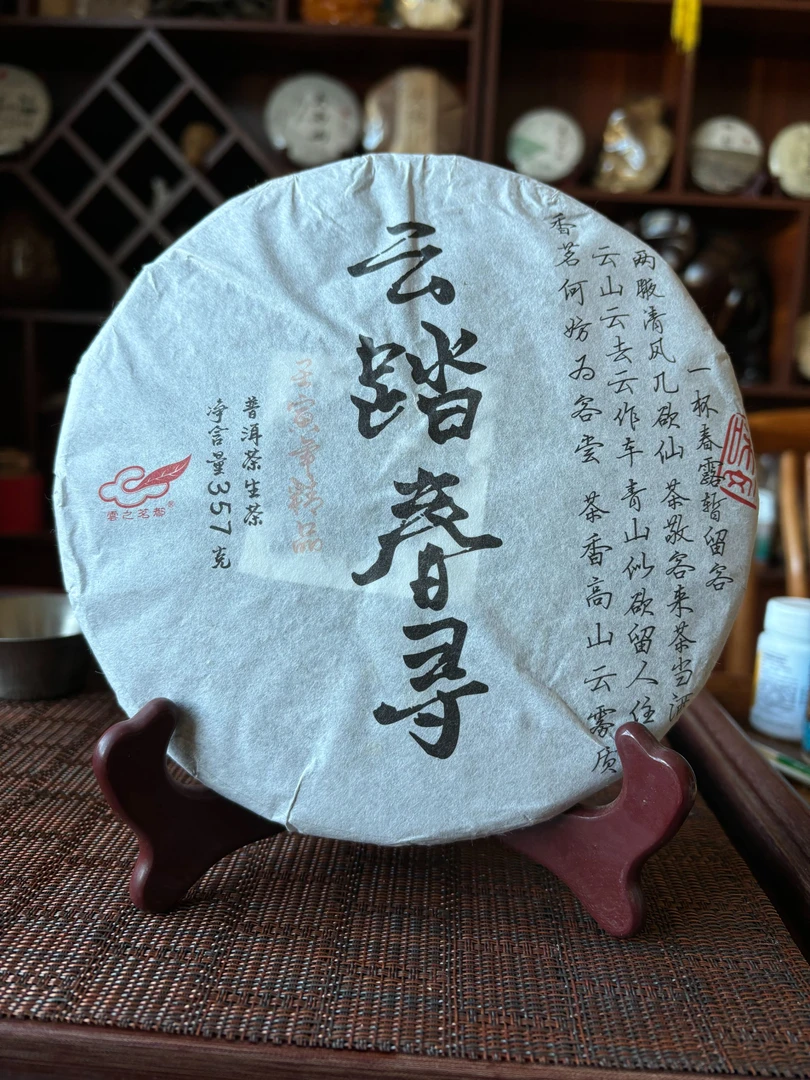 一杯春露暂留客
两腋清风几欲仙 茶敬客来茶当酒
云山云去云作车 青山似欲留人住
香茗何妨为客尝 茶香高山云雾质
云踏春寻
壬寅年精品
普洱茶生茶
净含量357克
雲之茗都®